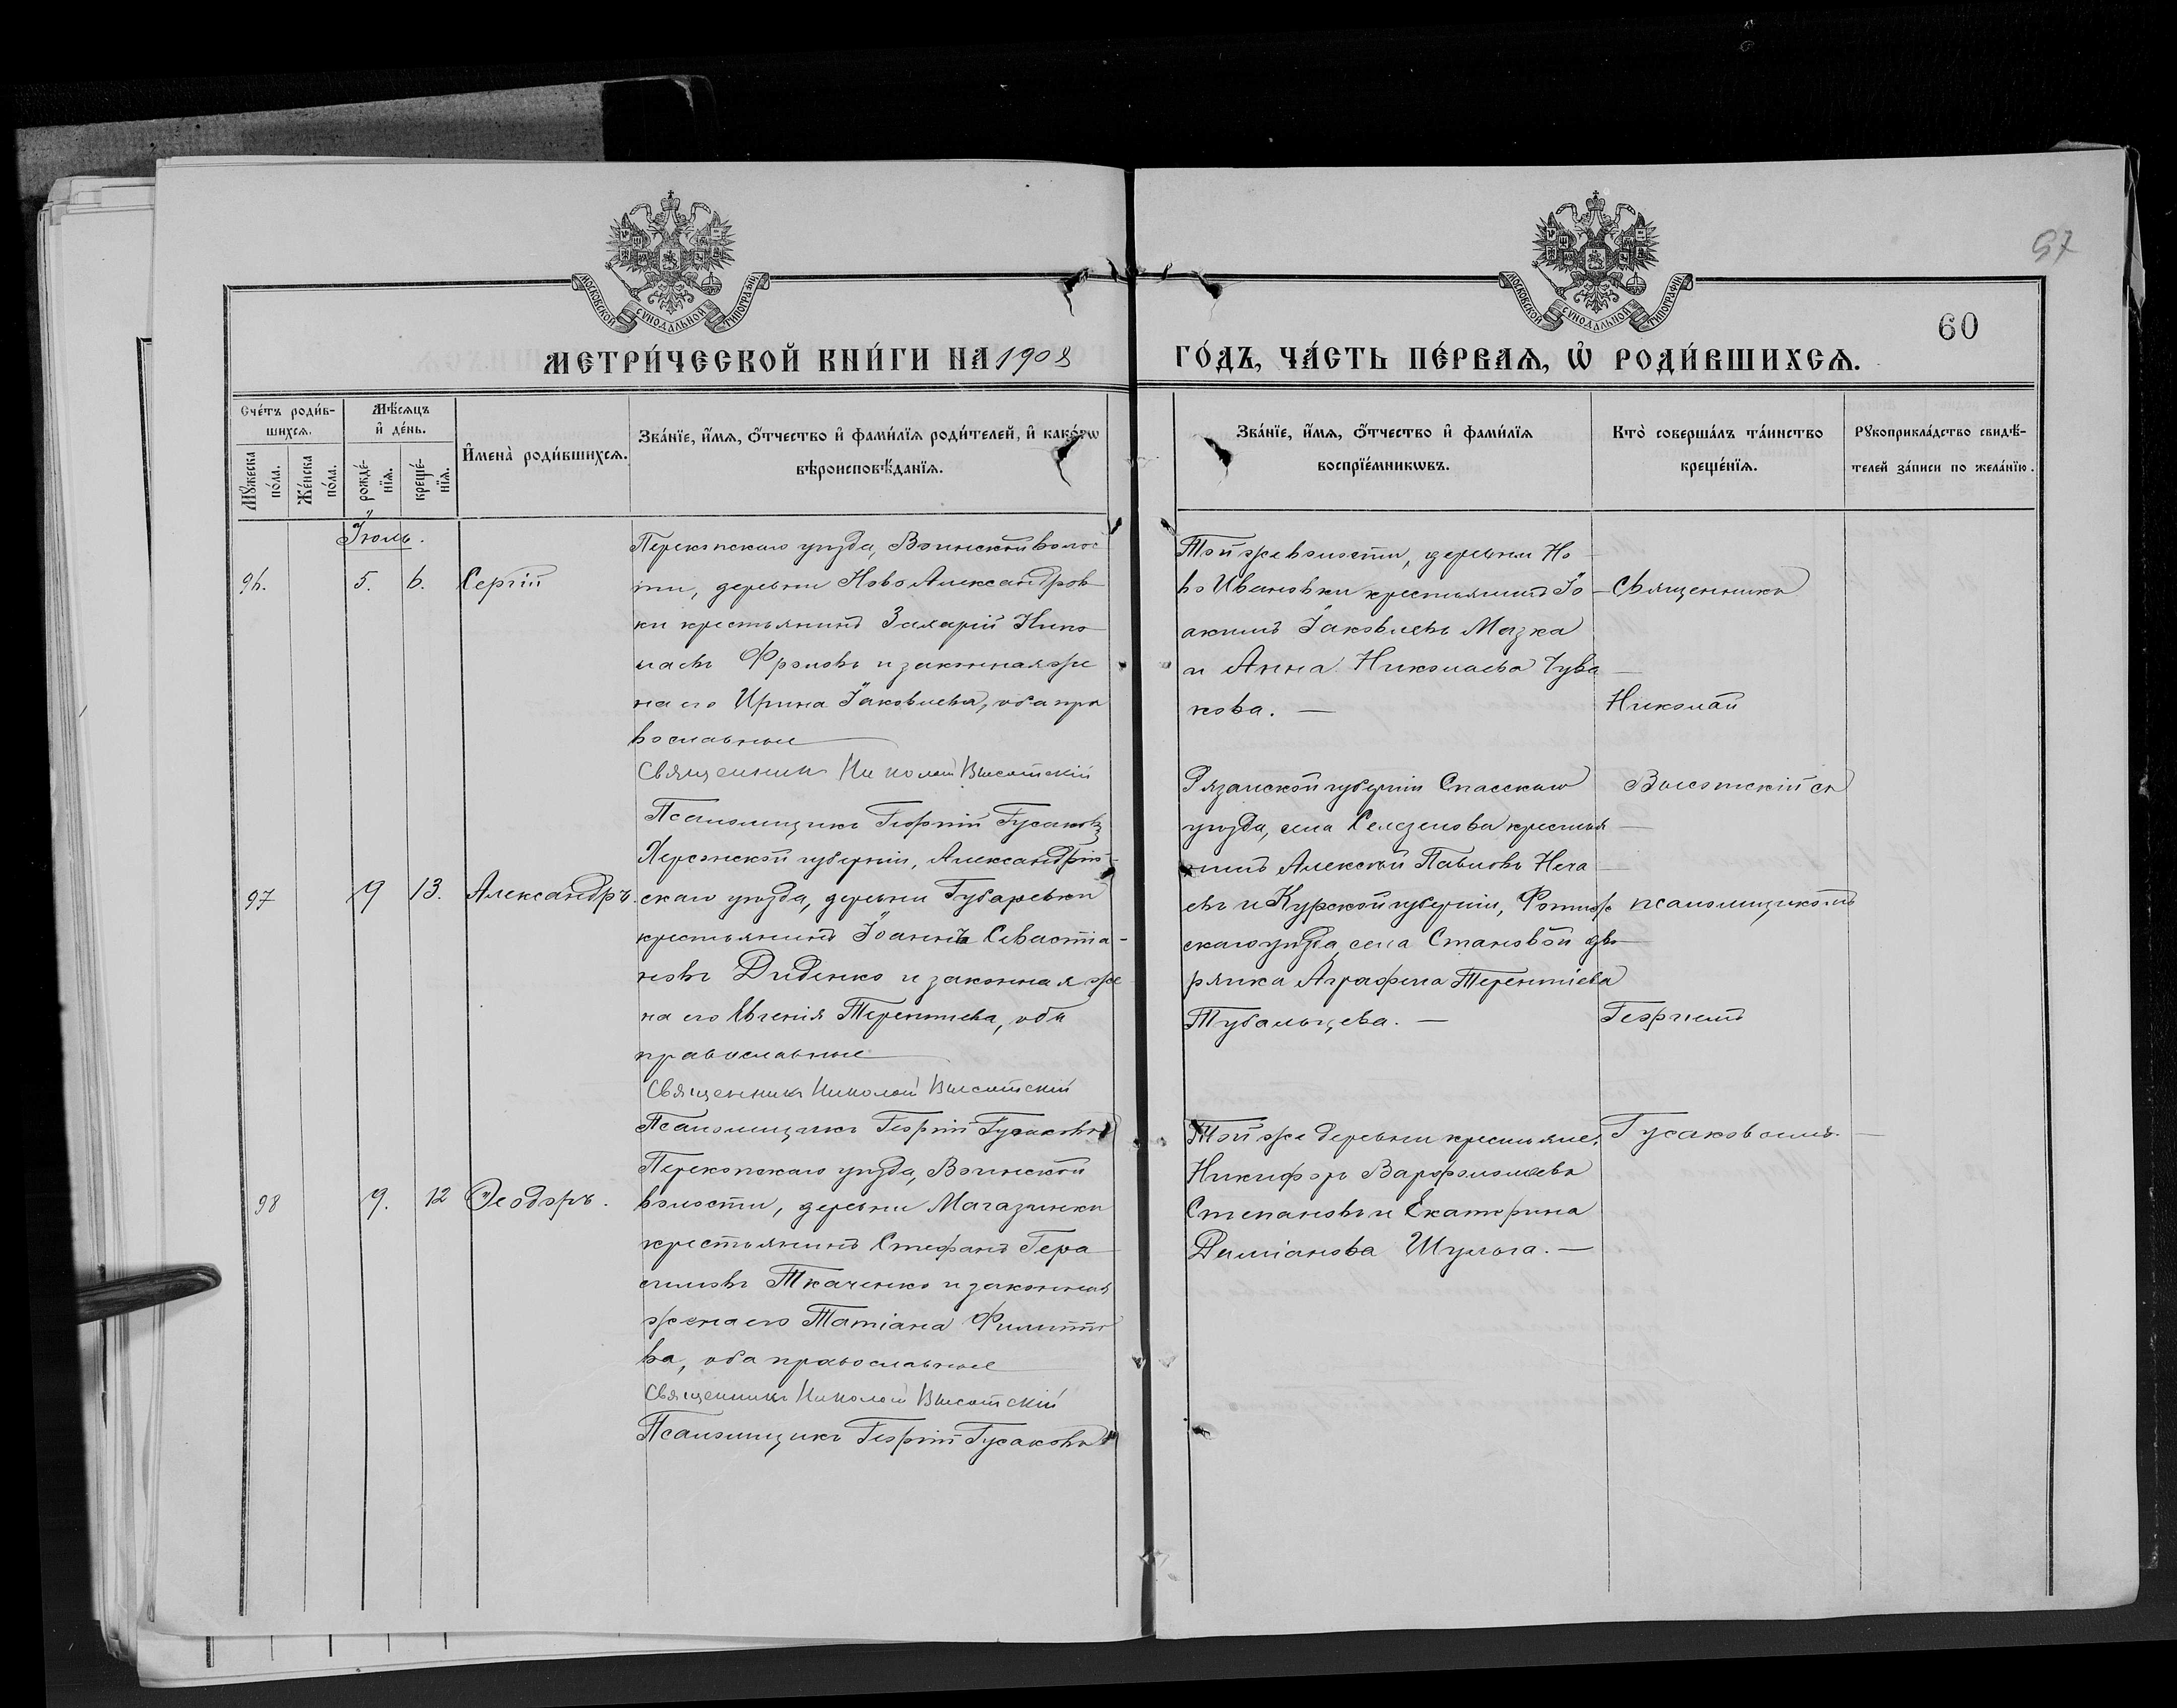 57
МОСКОВСКОЙ СѴНОДАЛЬНОЙ ТИПОГРАФІИ.
МОСКОВСКОЙ СѴНОДАЛЬНОЙ ТИПОГРАФІИ.
60
МЕТРИ́ЧЕСКОЙ КНИ́ГИ НА 1908
ГО́ДЪ, ЧА́СТЬ ПЕ́РВАѦ, Ѡ҆ РОДИ́ВШИХСѦ.
Сче́тъ роди́в-
шихсѧ.
Мѹ́жеска по́ла.
Же́нска по́ла.
Мѣ́сѧцъ
и҆ де́нь.
рожде́-
нїѧ.
креще́-
нїѧ.
И҆мена̀ роди́вшихсѧ.
Зва́нїе, и҆́мѧ, ѻ҆́тчество и҆ фами́лїѧ роди́телей, и҆ како́гѡ
вѣроисповѣ́данїѧ.
Зва́нїе, и҆́мѧ, ѻ҆́тчество и҆ фами́лїѧ
воспрїе́мникѡвъ.
Кто̀ соверша́лъ та́инство
креще́нїѧ.
Рѹкоприкла́дство свидѣ́-
телей за́писи по жела́нїю.
Іюль.
96. 5. 6. Сергій
Перекопскаго уѣзда, Воинской волос
ти, деревни Ново Александров
ки крестьянинъ Захарій Нико
лаевъ Фроловъ и законная же
на его Ирина Іаковлева, оба пра
вославные
Священникъ Николай Высотскій
Псаломщикъ Георгій Гусаковъ
Той же волости, деревни Но
во Ивановки крестьянинъ Іо
акимъ Іаковлевъ Мазка
и Анна Николаева Чува
кова. —
97 9 13. Александръ.
Херсонской губерніи, Александрій-
скаго уѣзда, деревни Губаревки
крестьянинъ Іоаннъ Севастіа-
новъ Диденко и законная же
на его Евгенія Терентіева, оба
православные
Священникъ Николай Высотскій
Псаломщикъ Георгій Гусаковъ
Рязанской губерніи Спасскаго
уѣзда, села Селезенова крестья
нинъ Алексѣй Павловъ Неча
евъ и Курской губерніи,
скаго уѣзда села Становой дво
рянка Аграфена Терентіева
Тубальцева. —
98 9. 12 Ѳеодоръ.
Перекопскаго уѣзда, Воинской
волости, деревни Магазинки
крестьянинъ Стефанъ Гера
симовъ Ткаченко и законная
жена его Татіана Филиппо
ва, оба православные
Священникъ Николай Высотскій
Псаломщикъ Георгій Гусаковъ
Той же деревни крестьяне,
Никифоръ Варфоломеевъ
Степановъ и Екатерина
Даміанова Шульга. —
Священникъ
Николай
Высотскій съ
псаломщикомъ
Георгіемъ
Гусаковымъ. —